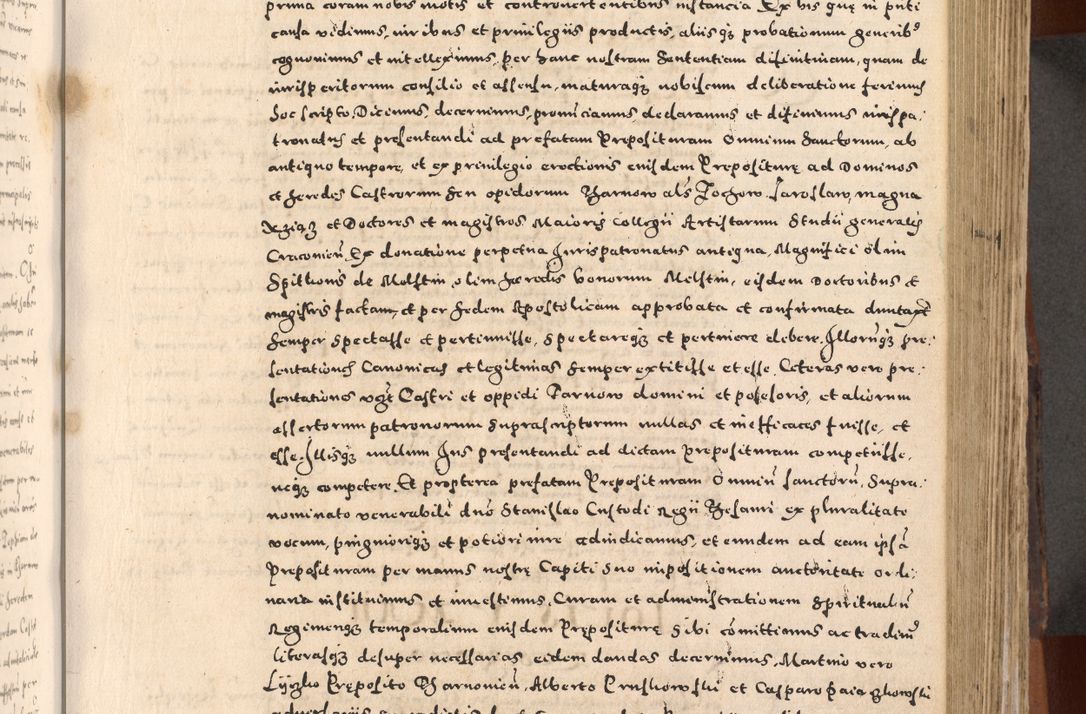 prima coram nobis motis et controvertentibus instantia Ex his quę in pnti
causa vidimus, iuribus et privilegiis productis, aliisq3 probationum generib9
cognovimus et intelleximus. per hanc nostram Sententiam difinitivam, quam de
iurisperitorum consilio et assensu, maturaq3 nobiscum deliberatione ferimus
hoc scripto, Dicimus, decernimus, pronūciamus, declaramus et difinimus iurispa:
tronatus et presentandi ad prefatam Preposituram Omnium Sanctorum, ab
antiquo tempore, et ex privilegio erectionis eiusdem Prepositurę ad Dominos
et heredes Castrorum seu opidorum Tharnow als Jochow. Jaroslaw, magna
et Doctores et magistros Maioris Collegii Artistarum Studii generalis
Cracovień. Ex donatione perpetua Jurispatronatus antiqua, Magnifici olim
Spitkonis de Melstin, olim heredis bonorum Melstin, eisdem Doctoribus et
magistris factam, et per Sedem Apostolicam approbata et confirmata duntaxat
Semper Spectasse et pertinuisse, Spectareq3 et pertinere debere. Illorūq3 pre:
sentationes Canonicas et legitimas Semper extitisse et esse. Ceteras vero pre:
sentationes Castri et oppidi Tarnow domini et possesoris, et aliorum
assertorum patronorum Suprascriptorum nullas et inefficaces fuisse, et
esse. Illisq3 nullum Jus presentandi ad dictam preposituram competiisse,
neq3 competere. Et propterea prefatam Preposituram Omniū sanctorū, Supra:
nominato venerabili dno Stanislao Custodi Regii Thesauri ex pluralitate
vocum, pinguioriq3 et potiori iure adiudicamus, et eundem ad eam ipsā
Preposituram per manus nostrę Capiti Suo impositionem auctoritate ordi:
naria instituimus et investimus. Curam et administrationem Spiritualiū
Regimenq3 temporalium eiusdem Prepositurę Sibi cōmittimus ac tradim9
literasq3 desuper necessarias eidem dandas decernimus. Martino vero
Preposito Tharnovień. Alberto Pruskowski et Casparo